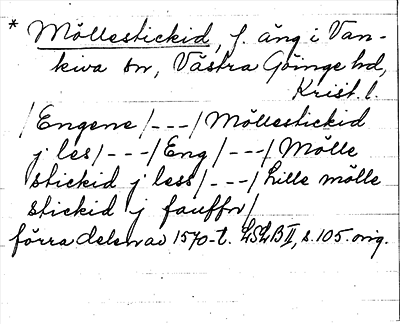 * Möllestickid, f. äng i Van-
kiva sn, Västra Göinge hd,
Krist. l.
/Engene/---/Möllestickid
j les/---/Eng/---/Mölle
stickid j less/---/Lille mölle
stickid j fauffn/
förra delen av 1570-t. LSLB II, s. 105. orig.